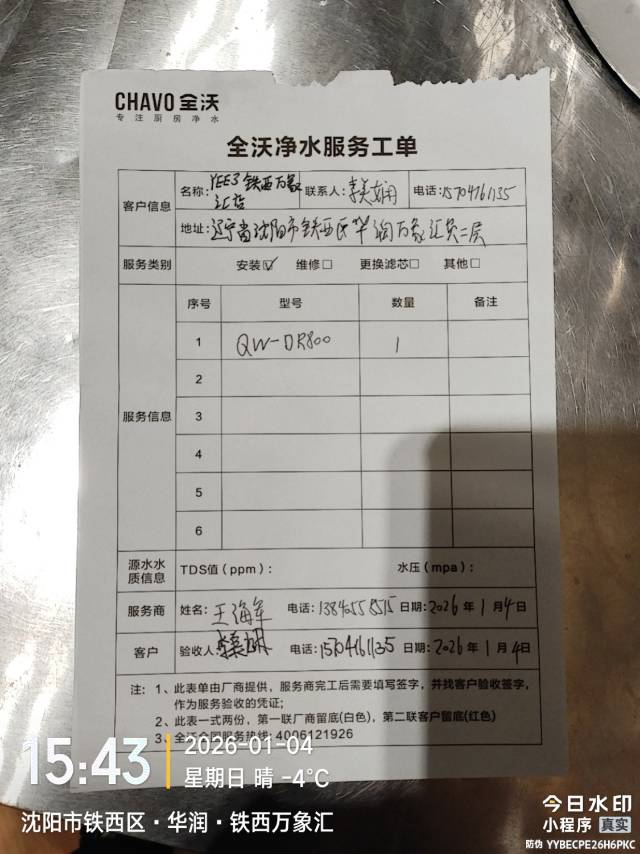 CHAVO 全沃
专注厨房净水
全沃净水服务工单
客户信息 名称: YEE3 铁西万象汇店 联系人: 电话: 15704161135
地址: 辽宁省沈阳市铁西区华润万象汇负二层
服务类别 安装☑ 维修☐ 更换滤芯☐ 其他☐
服务信息 序号 型号 数量 备注
1 QW-DR800 1
2
3
4
5
6
源水水质信息 TDS值（ppm）： 水压（mpa）：
服务商 姓名: 王海军 电话: 日期: 2026 年 1 月 4 日
客户 验收人: 电话: 15704161135 日期: 2026 年 1 月 4 日
注: 1、此表单由厂商提供，服务商完工后需要填写签字，并找客户验收签字，
作为服务验收的凭证;
2、此表一式两份，第一联厂商留底(白色)，第二联客户留底(红色)
3、全沃全国服务热线: 4006121926
15:43
2026-01-04
星期日 晴 -4℃
沈阳市铁西区·华润·铁西万象汇
今日水印
小程序 真实
防伪 YYBECPE26H6PKC